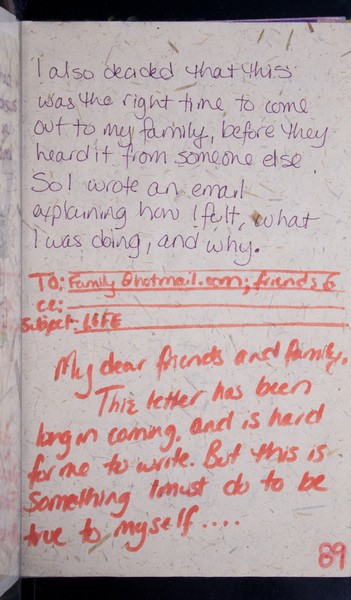 I also decided that this
was the right time to come
out to my family, before they
heard it from someone else.
So I wrote an email
explaining how I felt, what
I was doing, and why.
To: Family@hotmail.com; friends@
cc:
Subject: LIFE
My dear friends and family,
This letter has been
long in coming, and is hard
for me to write. But this is
something I must do to be
true to myself....
89